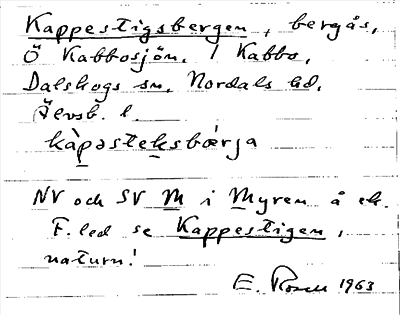 Kappestigsbergen, bergås,
Ö Kabbosjön. I Kabbo,
Dalskogs sn, Nordals hd,
Älvsb. l.
kàpəsteksbærja
NV och SV M i Myren å ek.
F. led se Kappestigen,
naturn!
E. Rosell 1963